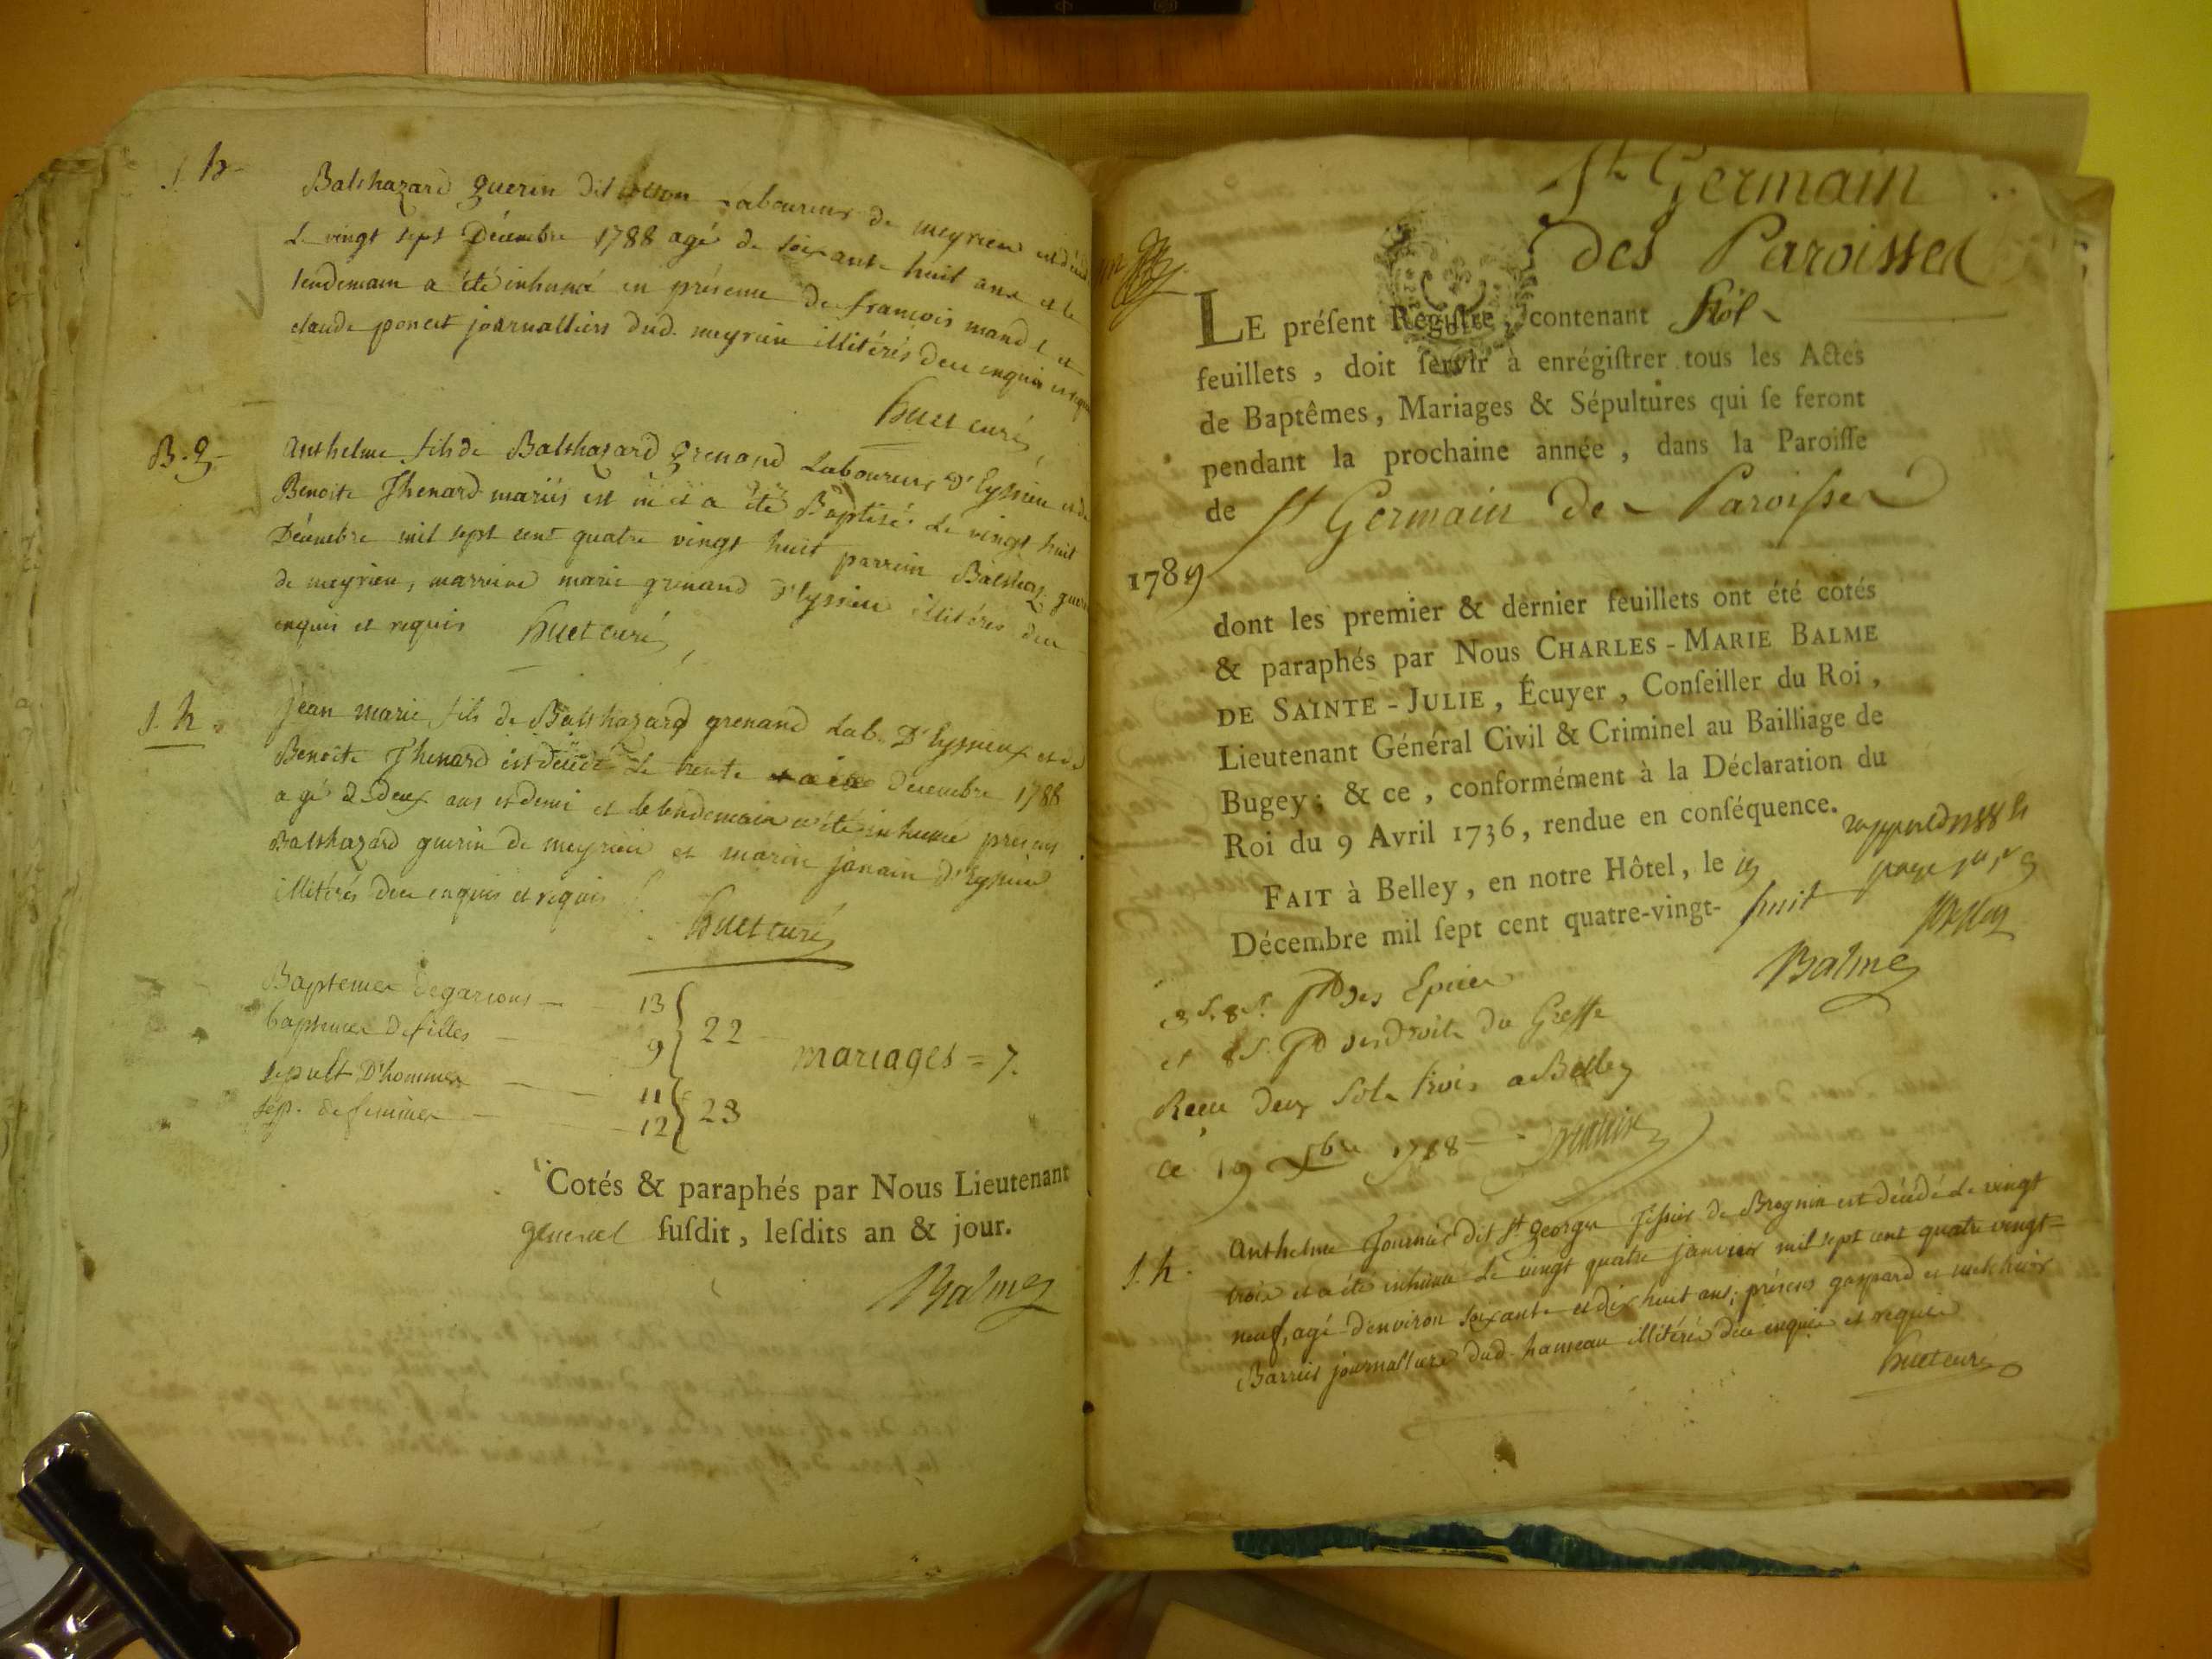 S. h.
Balthazard guerin dit Laboureur de meyrieu est
Le vingt sept Décembre 1788 agé de soixante huit ans et le
lendemain a été inhumé en présence de françois et
claude poncet journalliers dud. meyrieu illitérés deu enquis et
huet curé
B. g.
Anthelme fils de Balthazard grenand Laboureur d'Eyssieu et de
Benoite Thenard mariés est né et a été Baptisé Le vingt huit
Décembre mil sept cent quatre vingt huit parrein Balthaz.
de meyrieu, marreine marie grenand d'Eyssieu illitérés deu
enquis et requis huet curé
S. h.
Jean marie fils de Balthazard grenand Lab. D'Eyssieux et de
Benoite Thenard est décédé Le trente Décembre 1788
agé de deux ans et demi et le lendemain a été inhumé presens
Balthazard guerin de meyrieu et marin janain d'Eyssieu
illitérés deu enquis et requis
huet curé
Baptemes de garcons — 13
baptemes de filles — 9 } 22
mariages = 7.
sepult. D'hommes — 11
sep. de femmes — 12 } 23
Cotés & paraphés par Nous Lieutenant
general susdit, lesdits an & jour.
Balme
St Germain
des Paroisses
LE préſent Regiſtre, contenant
feuillets, doit ſervir à enrégiſtrer tous les Actes
de Baptêmes, Mariages & Sépultures qui ſe feront
pendant la prochaine année, dans la Paroiſſe
de St Germain de Paroisse
1789
dont les premier & dernier feuillets ont été cotés
& paraphés par Nous CHARLES-MARIE BALME
DE SAINTE-JULIE, Écuyer, Conſeiller du Roi,
Lieutenant Général Civil & Criminel au Bailliage de
Bugey; & ce, conformément à la Déclaration du
Roi du 9 Avril 1736, rendue en conſéquence.
FAIT à Belley, en notre Hôtel, le 19
Décembre mil ſept cent quatre-vingt- huit
Balme
des Epices
et des droits du Greffe
Reçu deux Sols trois a Belley
ce 19 Xbre 1788
S. h.
Anthelme fournier dit St george de Brognin est décédé le vingt
trois et a été inhumé Le vingt quatre janvier mil sept cent quatre vingt-
neuf, agé d'environ soixante et dix huit ans; présens gaspard et melchior
Barriei journalliers dud. hameau illitérés deu enquis et requis
huet curé